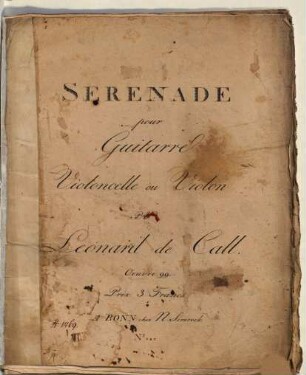 SERENADE
pour
Guitarre
Violoncelle ou Violon
Leonard de Call.
Oeuvre 99
Prix 3 Francs
A BONN chez N. Simrock